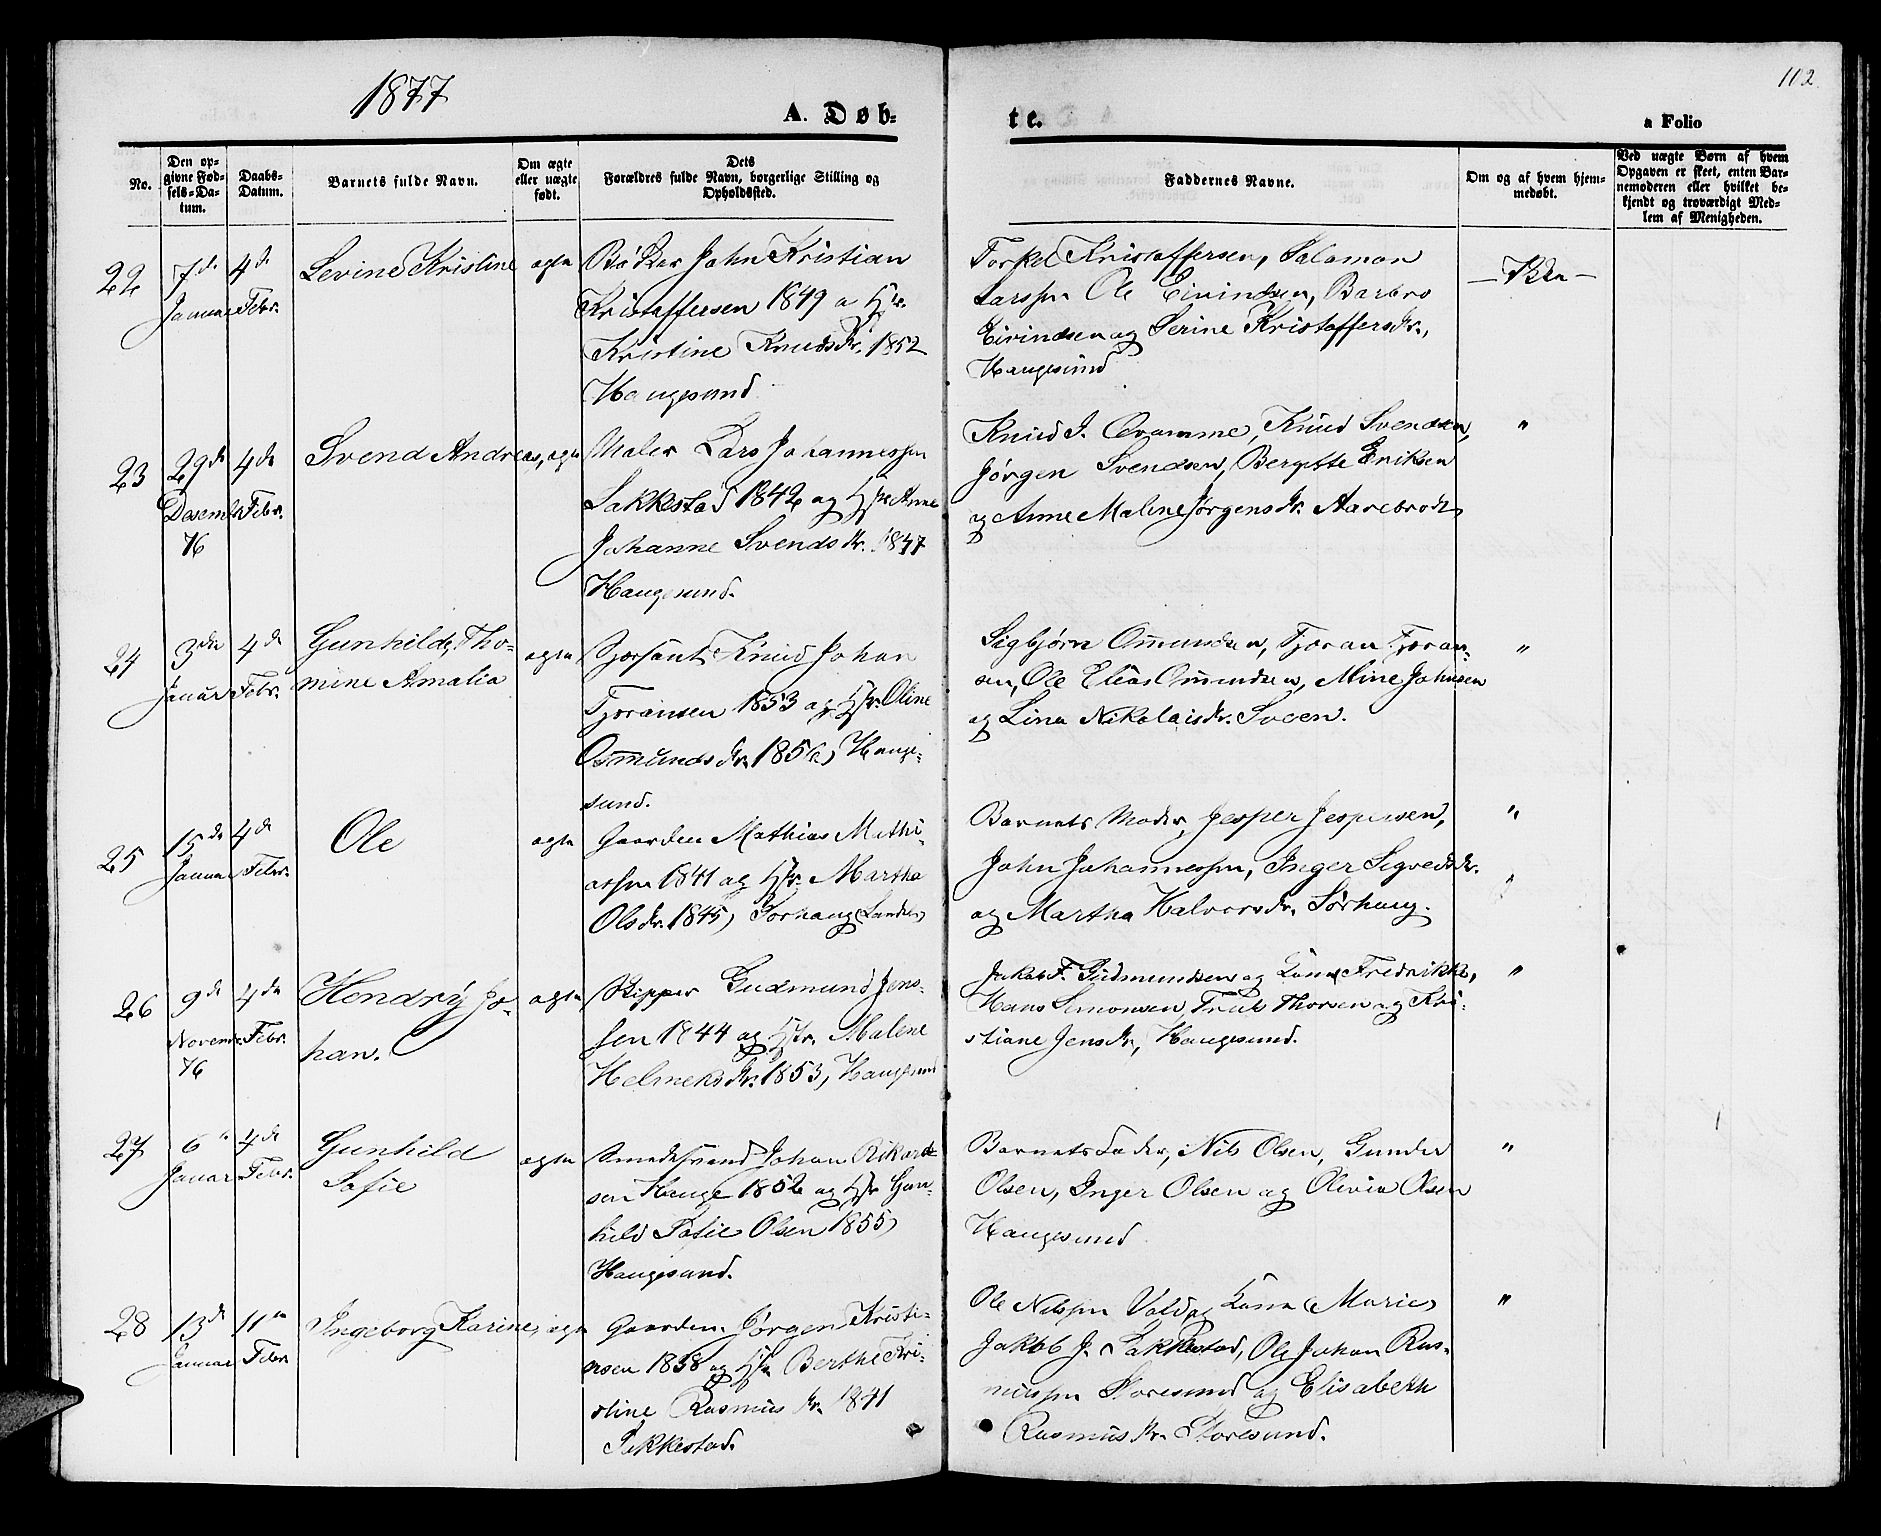 1877
112
A. Døb-
te.
a Folio
No.
Den op-
givne Fød-
sels-Da-
tum.
Daabs-
Datum.
Barnets fulde Navn.
Om ægte
eller uægte
født.
Dets
Forældres fulde Navn, borgerlige Stilling og
Opholdssted.
Faddernes Navne.
Om og af hvem hjem-
medøbt.
Ved uægte Børn af hvem
Opgaven er skeet, enten Bar-
nemoderen eller hvilket be-
kjendt og troværdigt Med-
lem af Menigheden.
22
7de
Januar
4de
Febr.
Levine Kristine
ægte
Bødker John Kristian
Kristoffersen 1849 a Hstr.
Kristine Knudsdr. 1852
Haugesund
Torkel Kristoffersen, Salamon
Larssen Ole Eivindsen, Barbro
Eivindsen og Serine Kristoffersdr.,
Haugesund
23
29de
Desemb
76
4de
Febr.
Svend Andreas,
ægte
Maler Lars Johannessen
Sakkestad 1842 og Hstr Anne
Johanne Svendsdr. 1847
Haugesund.
Knud J. Qvamme, Knud Svendsen,
Jørgen Svendsen, Bergitte Eriksen
og Anne Maline Jørgensdr. Aarebrodt
"
24
3die
Januar
4de
Febr.
Gunhilde Tho-
mine Amalia
ægte
Knud Johan
Tjøransen 1853 og Hstr. Oline
Osmundsdr. 1856, Hauge-
sund.
Sigbjørn Omundsen, Tjøran Tjøran-
sen, Ole Elias Omundsen, Mine Johnsen
og Lina Nikolaisdr. Sveen.
"
25
15de
Januar
4de
Febr.
Ole
ægte
Gaardm. Mathias Mathi-
assen 1841 og Hstr. Martha
Olsdr. 1845, Sørhaug Landss
Barnets Moder, Jesper Jespersen,
John Johannessen, Inger Sigvedsdr.
og Martha Halvorsdr. Sørhaug.
"
26
9de
Novemb.
76
4de
Febr.
Hendrÿ Jo-
han.
ægte
Skipper Gudmund Jens-
sen 1844 og Hstr. Malene
Helmeksdr. 1853, Haugesund
Jakob F. Gudmundsen og Kone Fredrikke,
Hans Simonsen, Thorsen og Kri-
stiane Jensdr., Haugesund.
"
27
6
Januar
4de
Febr.
Gunhild
Sofie
ægte
Smedesvend Johan Rikard-
sen Hauge 1852 og Hstr Gun-
hild Sofie Olsen 1855,
Haugesund.
Barnets Fader, Nils Olsen, Gunder
Olsen, Inger Olsen og Olivia Olsen
Haugesund
"
28
13de
Januar
11te
Febr.
Ingeborg Karine,
ægte
Gaardm. Jørgen Kristi-
ansen 1838 og Hstr Berthe Kri-
stine Rasmusdr. 1841
Sakkestad.
Ole Nilssen Vold og Kone Marie,
Jakob J. Sakkestad, Ole Johan Ras-
mussen Storesund og Elisabeth
Rasmusdr. Storesund.
"